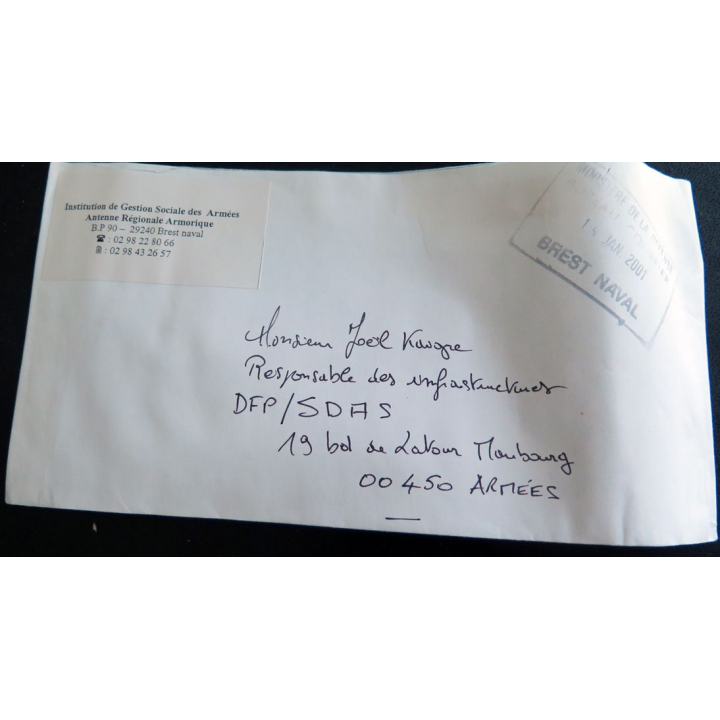 Institution de Gestion Sociale des Armées
Antenne Régionale Armorique
B.P 90 – 29240 Brest naval
☎ : 02 98 22 80 66
🖷 : 02 98 43 26 57
MINISTERE DE LA
JAN. 2001
BREST NAVAL
Monsieur Joël
Responsable des infrastructures
DFP/SDAS
19 bd de Latour Maubourg
00450 ARMÉES